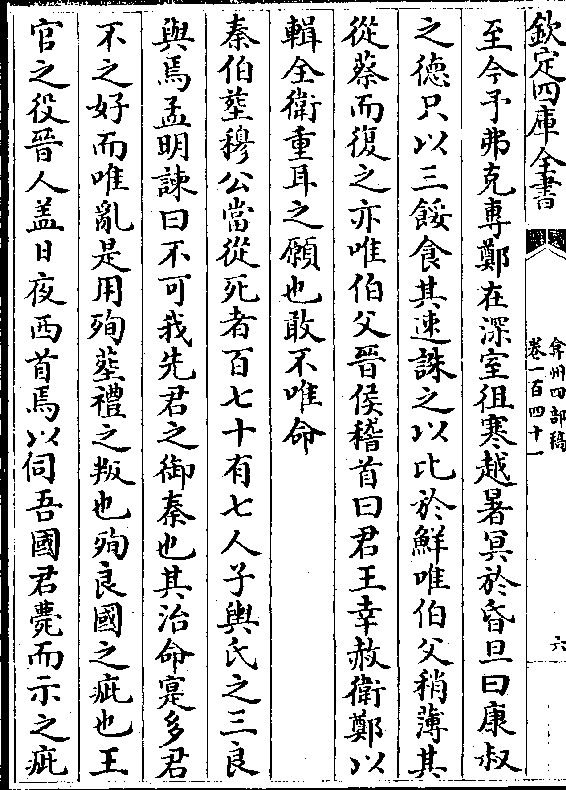 欽定四庫全書
弇州四部稿
卷一百四十一
六
至今予弗克專鄭在深室徂寒越暑冥於昏旦曰康叔
之德只以三餒食其速誅之以比於鮮唯伯父稍薄其
從蔡而復之亦唯伯父晉侯稽首曰君王幸赦衛鄭以
輯全衛重耳之願也敢不唯命
秦伯塟穆公當從死者百七十有七人子輿氏之三良
與焉孟明諫曰不可我先君之御秦也其治命寔多君
不之好而唯亂是用殉塟禮之叛也殉良國之疵也王
官之役晉人盖日夜西首焉以伺吾國君薨而示之疵